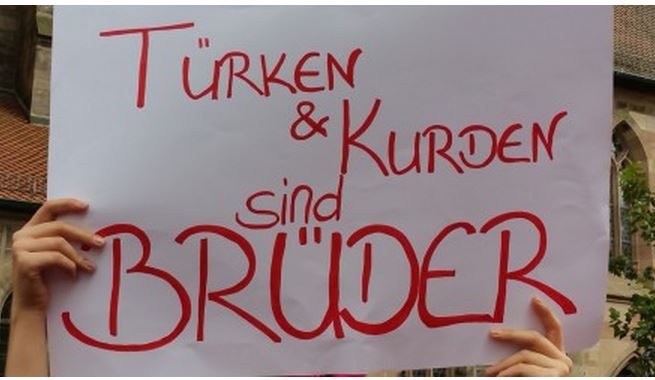 TÜRKEN
& KURDEN
sind
BRÜDER